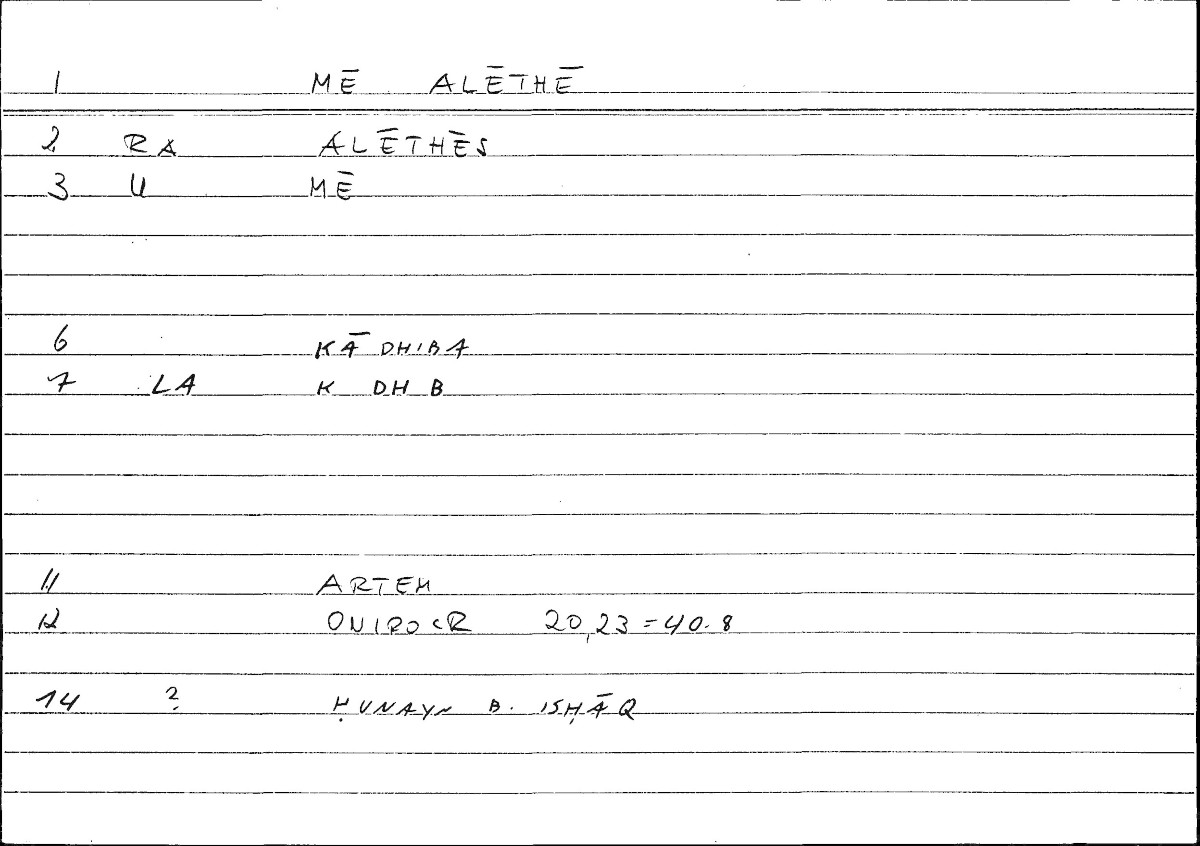 1 MĒ ALĒTHĒ
2 RA ALĒTHĒS
3 U MĒ
6 KĀDHIBA
7 LA K DH B
11 ARTEM
12 ONIROCR 20,23=40.8
14 ? ḤUNAYN B. ISḤĀQ